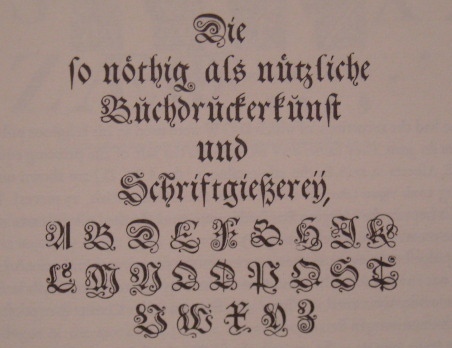 Die
so nöthig als nützliche
Buchdruckerkunst
und
Schriftgießereÿ,
A B D E F G H I K
L M N O O P Q S T
V W X Y Z